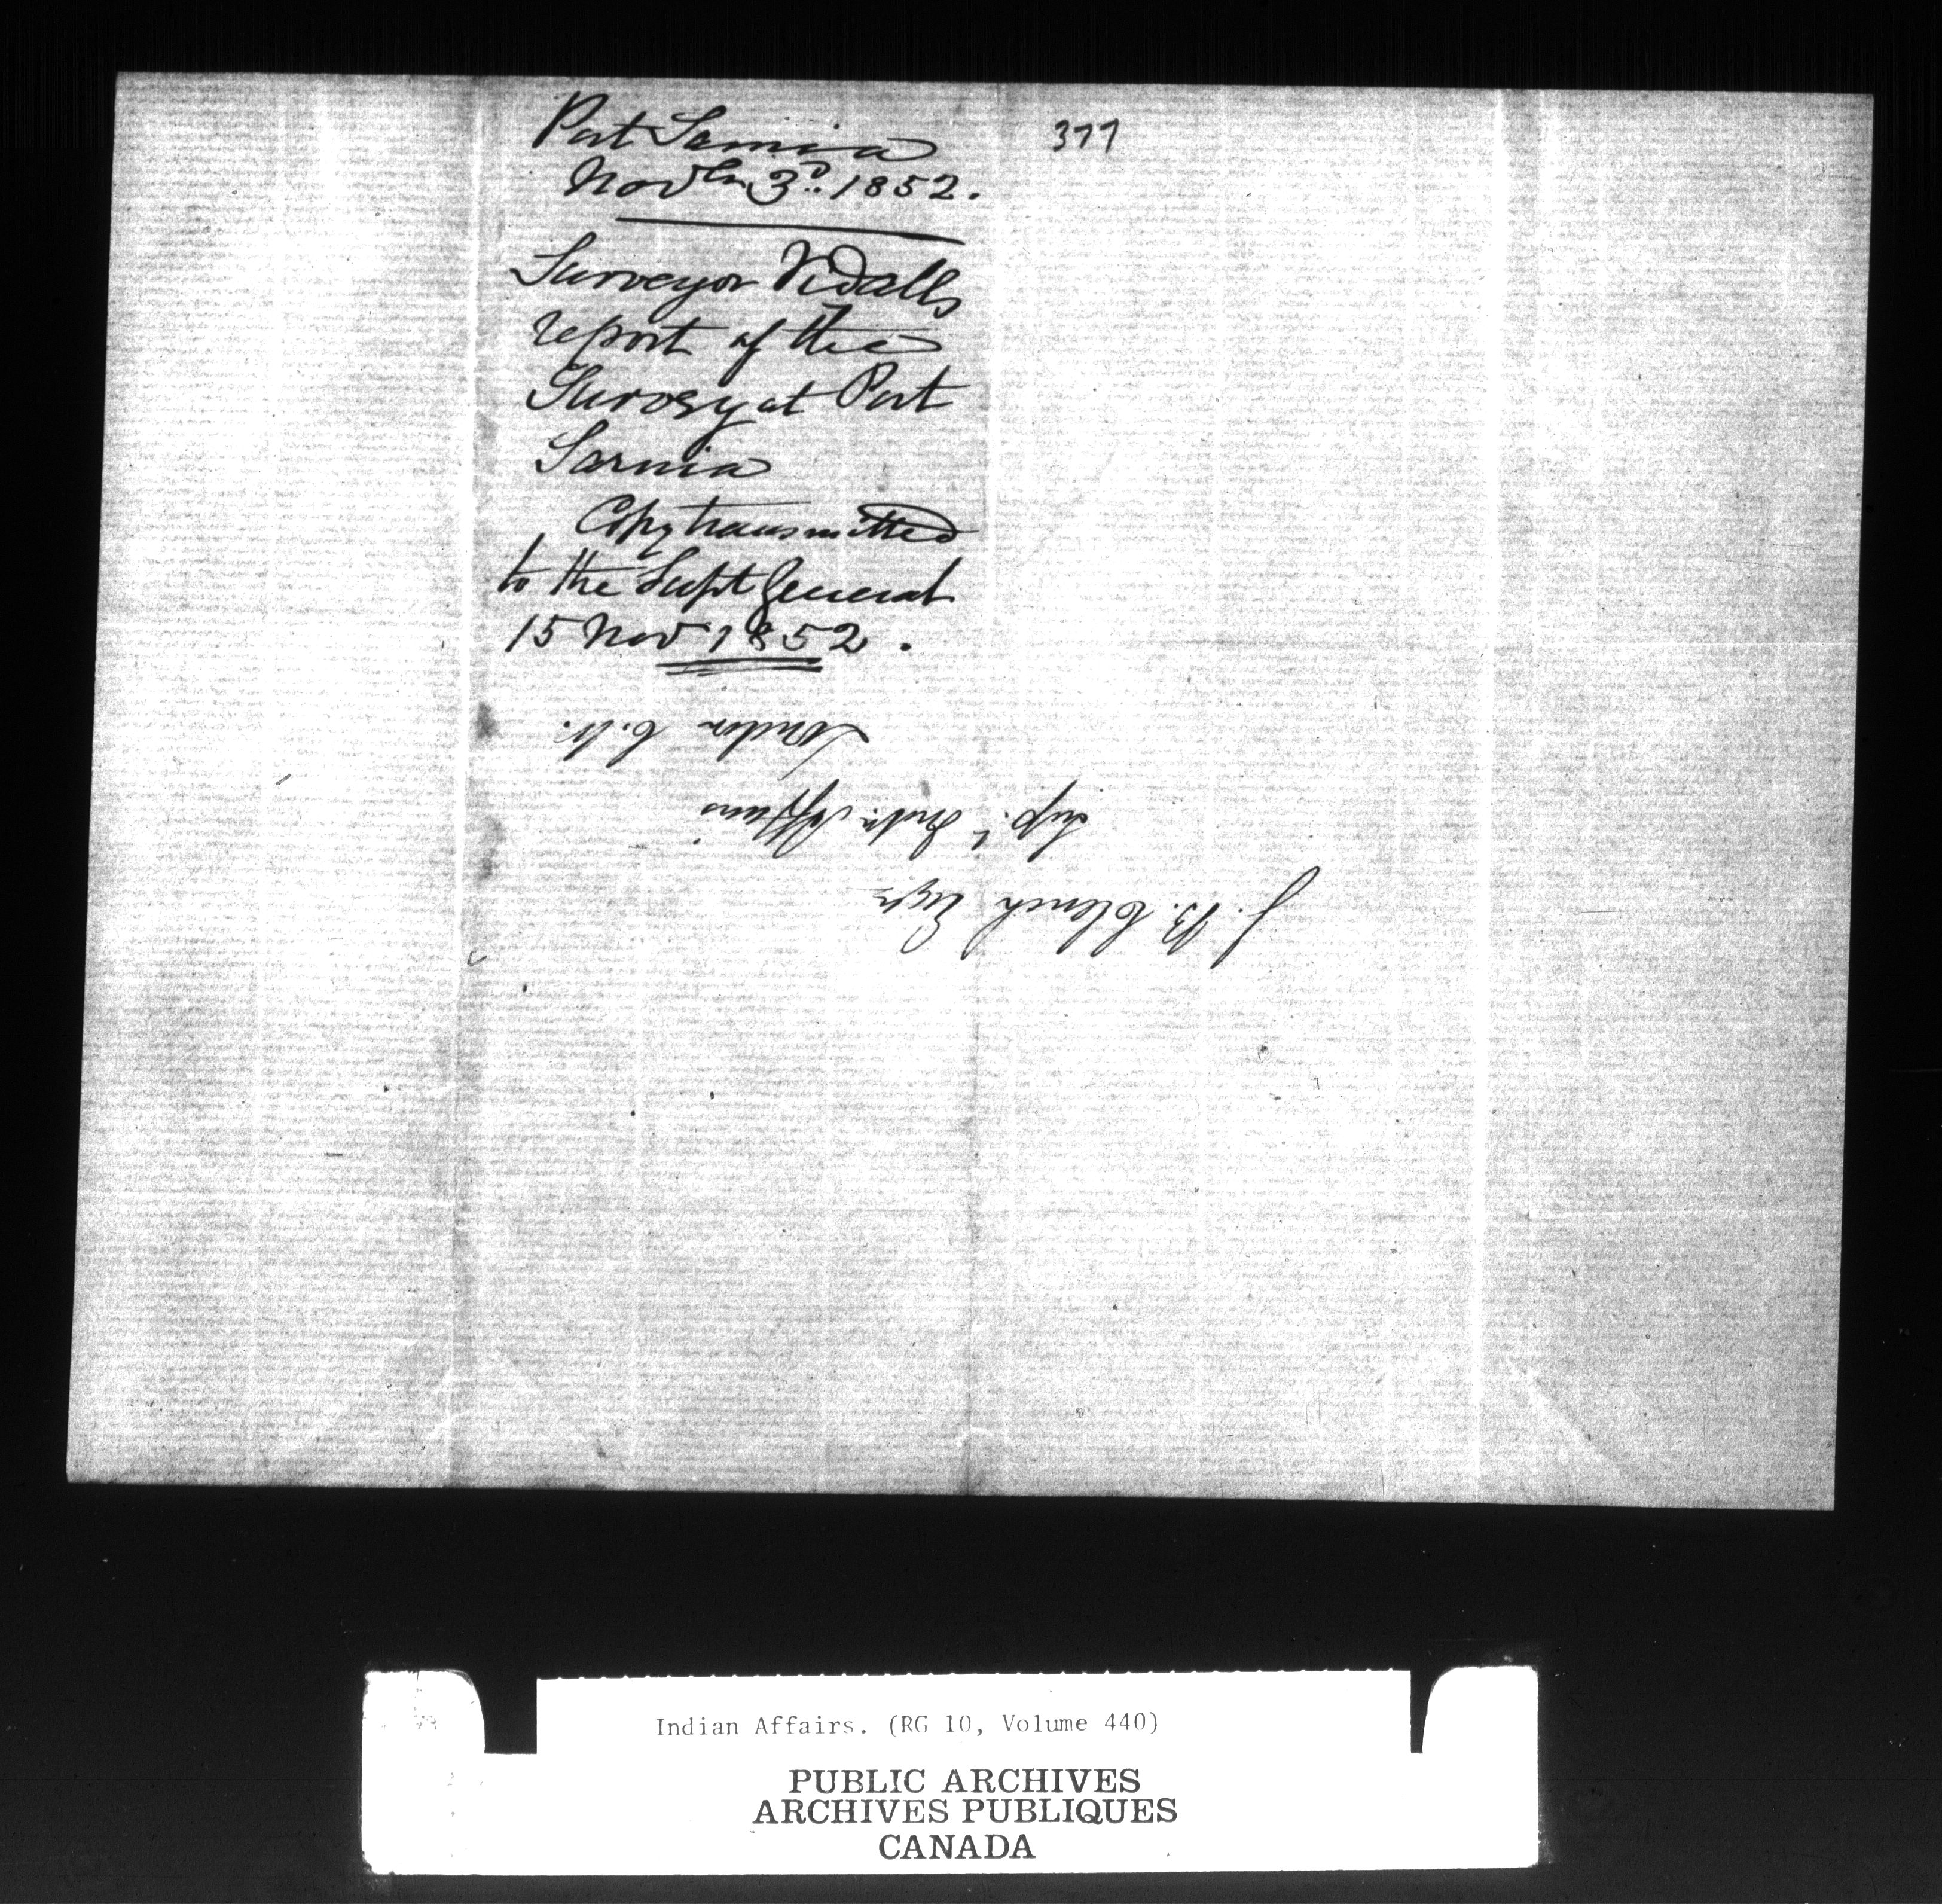 377
Port Sarnia
Novbr 3d. 1852.
Surveyor Vidalls
report of the
Survey at Port
Sarnia
Copy transmitted
to the Supt General
15 Nov 1852.
J. B. Clench Esqr
Supt. Indn. Affairs
London C.W.
Indian Affairs. (RG 10, Volume 440)
PUBLIC ARCHIVES
ARCHIVES PUBLIQUES
CANADA